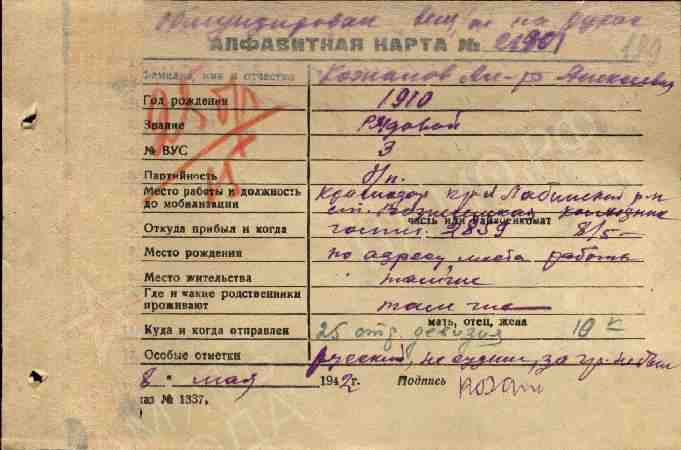 Обмундирован на руках
АЛФАВИТНАЯ КАРТА № 21901
189
Фамилия, имя и отчество Кожанов Ал-р Алексеевич
Год рождения 1910
Звание Рядовой
№ ВУС 3
Партийность б/п.
Место работы и должность до мобилизации Краснодар кр. Лабинский р-н
ст. Вознесенская колхозник
часть или райвоенкомат
Откуда прибыл и когда госпит. 2859 8/5–
Место рождения по адресу места работы
Место жительства там же
Где и какие родственники проживают там же
мать, отец, жена
Куда и когда отправлен 25 отд. 10
Особые отметки русский, не судим, за гр. не был
8 " мая 1942г. Подпись
каз № 1337,